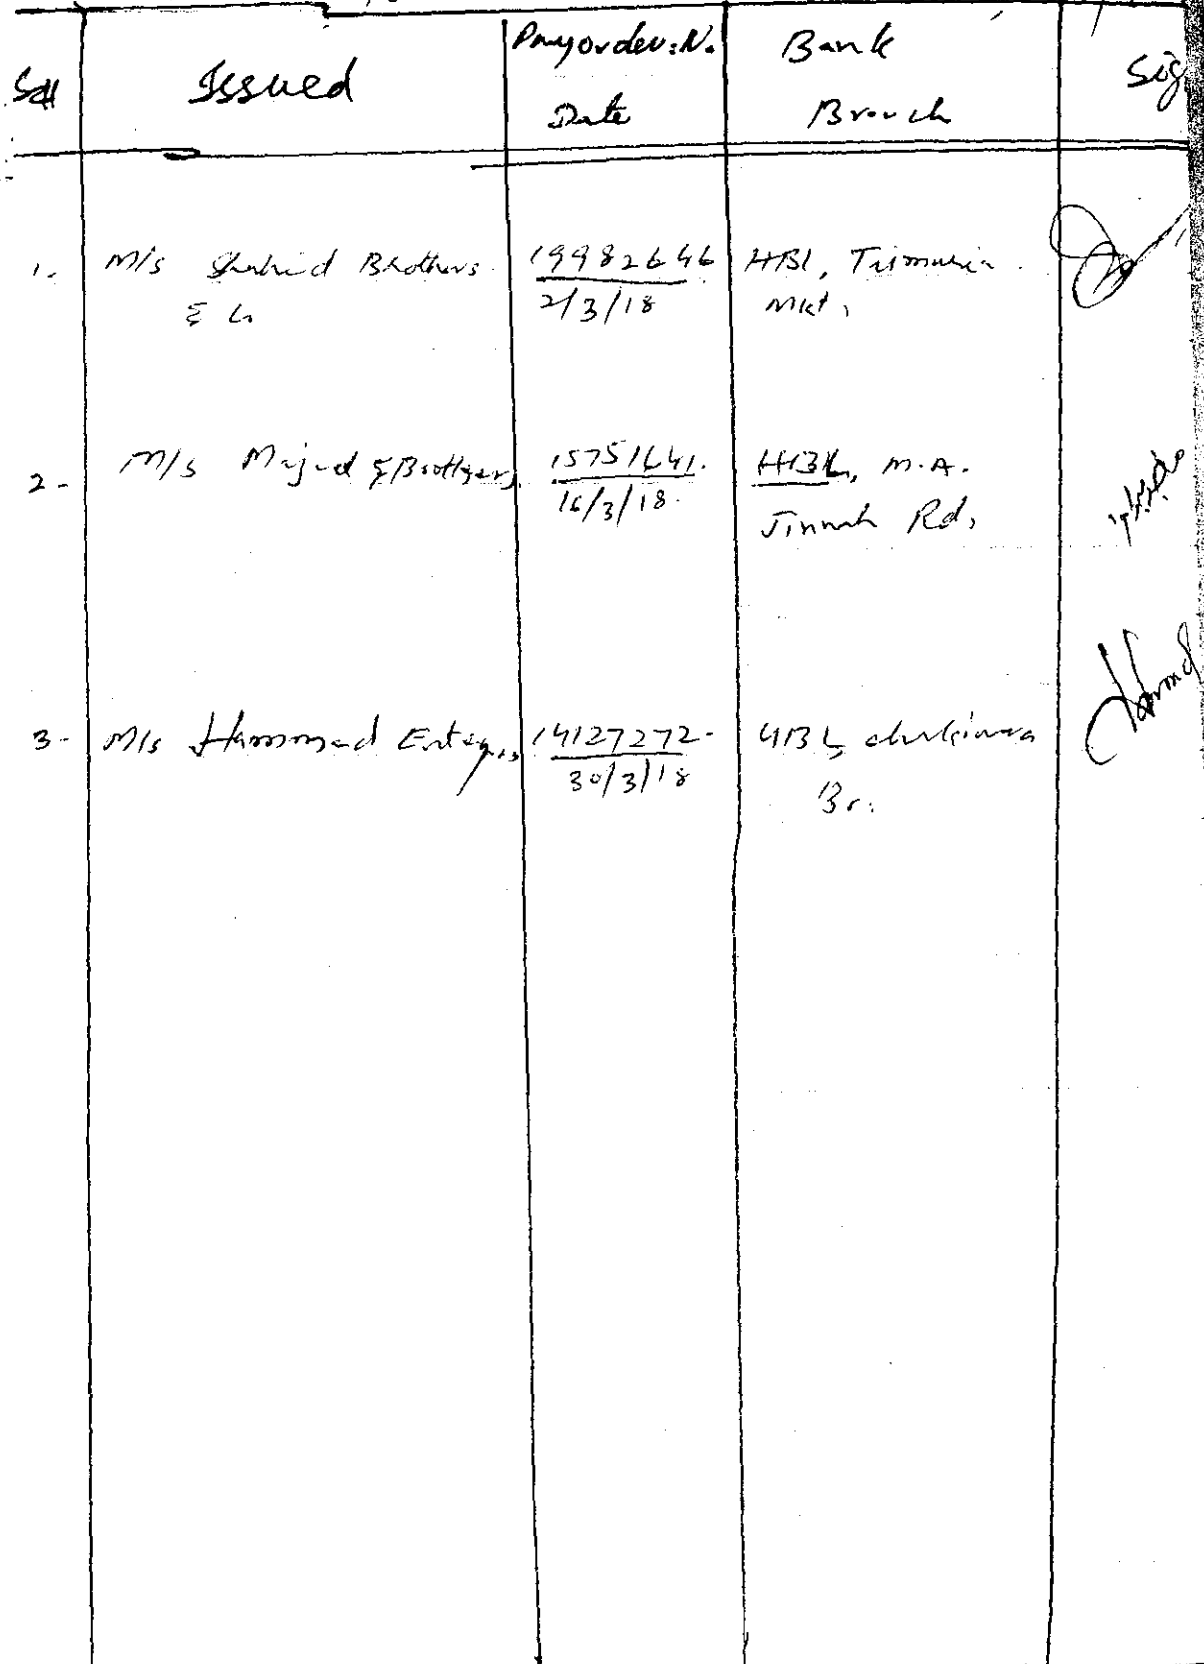 S#
Issued
Payorder:N.
Date
Bank
Branch
Sig
1.
M/s Shahid Brothers
& Co
19982646
2/3/18
HBL,
Mkt,
2-
M/s Majid & Brothers
15751641.
16/3/18.
HBL, M.A.
Jinnah Rd,
3-
M/s Hammad Enterp.,
14127272-
30/3/18
UBL,
Br.